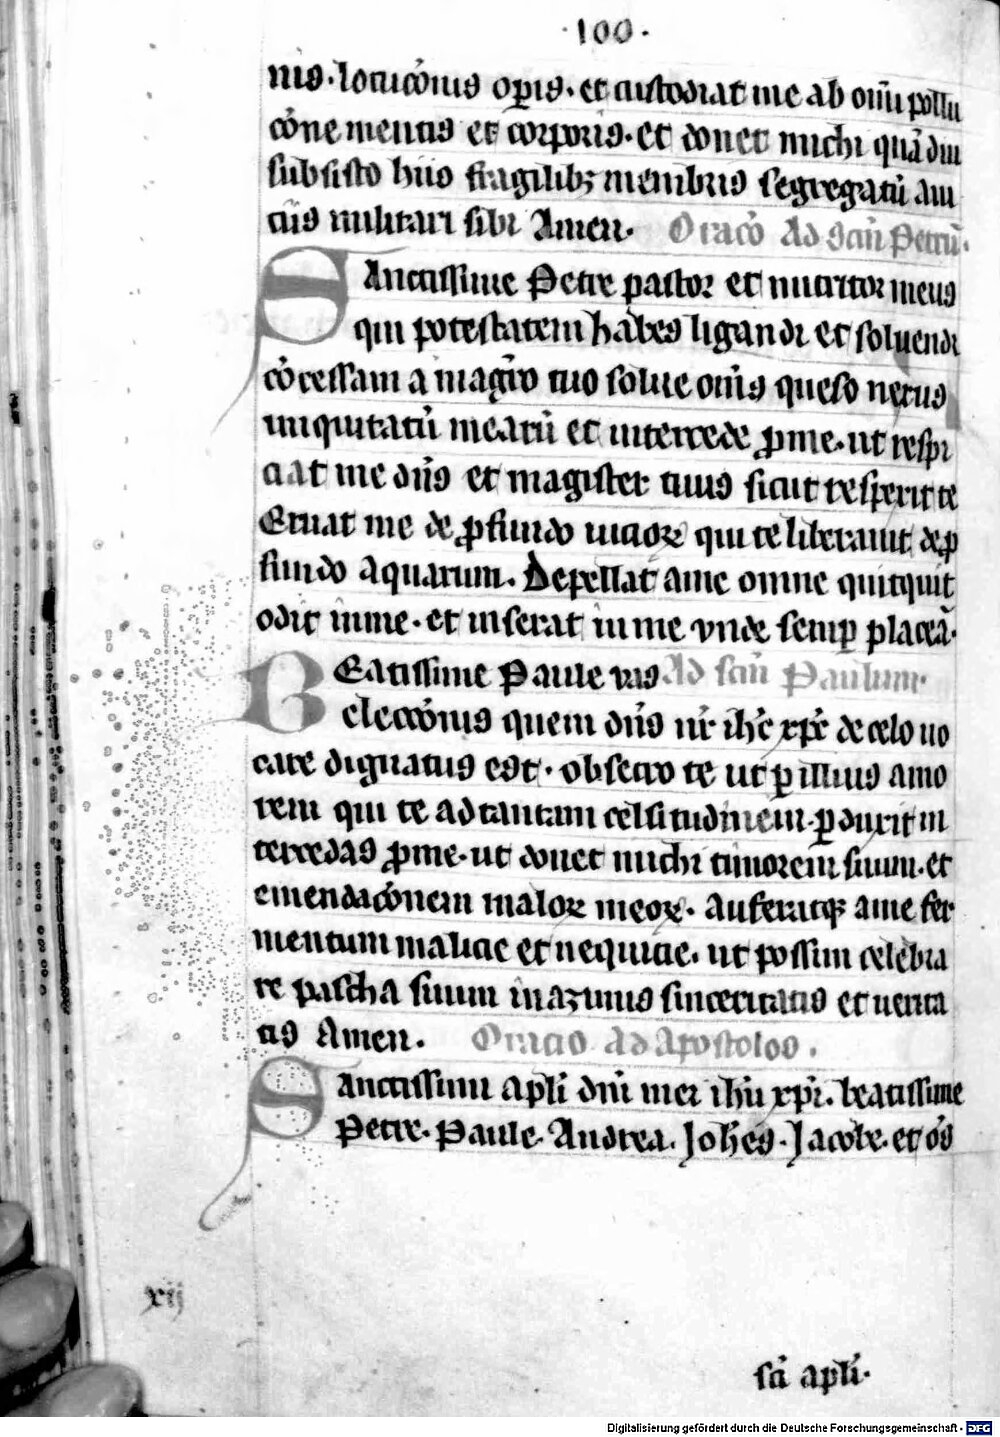 ·100·
nis· locucōnis op̄is· et custodiat me ab om̄i pollu
cōne mentis et corporis· et donet michi quādiu
subsisto huio fragilibꝫ membris segregatū aui
cūs militari sibi Amen· Oracō Ad Scm̄ Petrū·
SAnctissime Petre pastor et nutritor meus
qui potestatem habes ligandi et soluendi
cōcessam a magr̄o tuo solue om̄is queso nexus
iniquitatū mearū et intercede ꝓ me· ut respi
ciat me dn̄s et magister tuus sicut respexit te
Eruat me de ꝓfundo uicioꝝ qui te liberauit de ꝓ
fundo aquarum· Depellat a me omne quitquit
odit in me· et inserat in me vnde semꝑ placeā·
BEatissime Paule vas Ad scm̄ Paulum·
eleccōnis quem dn̄s nr̄ ih̄c xp̄c de celo uo
care dignatus est· obsecro te ut ꝑ illius amo
rem qui te ad tantam celsitudinem ꝑduxit in
tercedas ꝓ me· ut donet michi timorem suum· et
emendacōnem maloꝝ meoꝝ· Auferatqꝫ a me fer
mentum malicie et nequicie· ut possim celebra
re pascha suum in azimis sinceritatis et uerita
tis Amen· Oracio Ad Apostolos·
SAnctissimi apl̄i dn̄i mei ih̄u xp̄i· beatissime
Petre· Paule· Andrea· Joh̄es· Jacobe· et om̄s
xij
scī apl̄i·
Digitalisierung gefördert durch die Deutsche Forschungsgemeinschaft - DFG